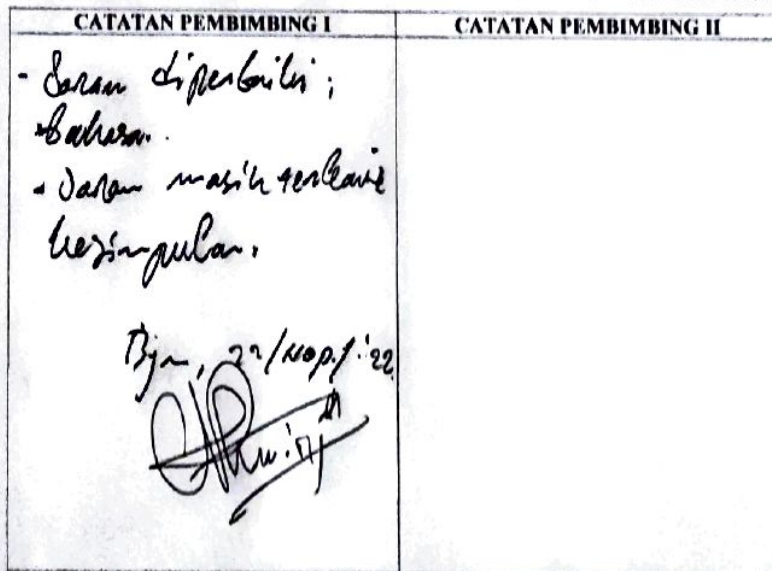 CATATAN PEMBIMBING I
CATATAN PEMBIMBING II
- Saran diperbaiki;
bahasa.
- Saran masih terkait
kesimpulan.
Bjm, 22/Nop./'22